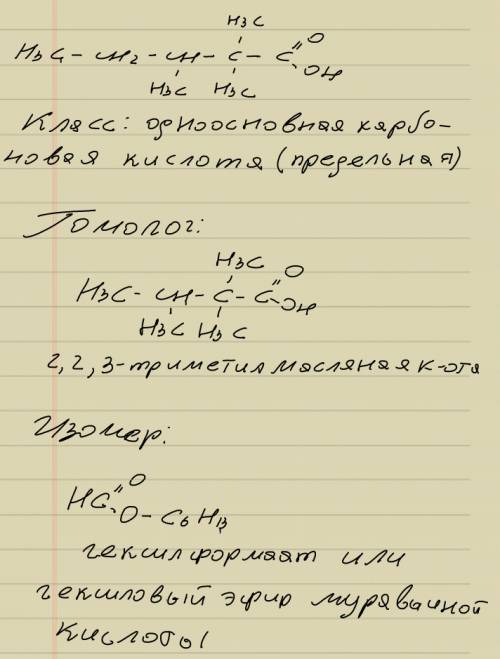 H3C
H3C – CH2 – CH – C – C O
OH
H3C H3C
Класс: одноосновная карбо-
новая кислота (предельная)
Гомолог:
H3C O
H3C – CH – C – C OH
H3C H3C
2, 2, 3-триметилмасляная к-ота
Изомер:
HC O
O – C6H13
гексилформаат или
гексиловый эфир муравьиной
кислоты